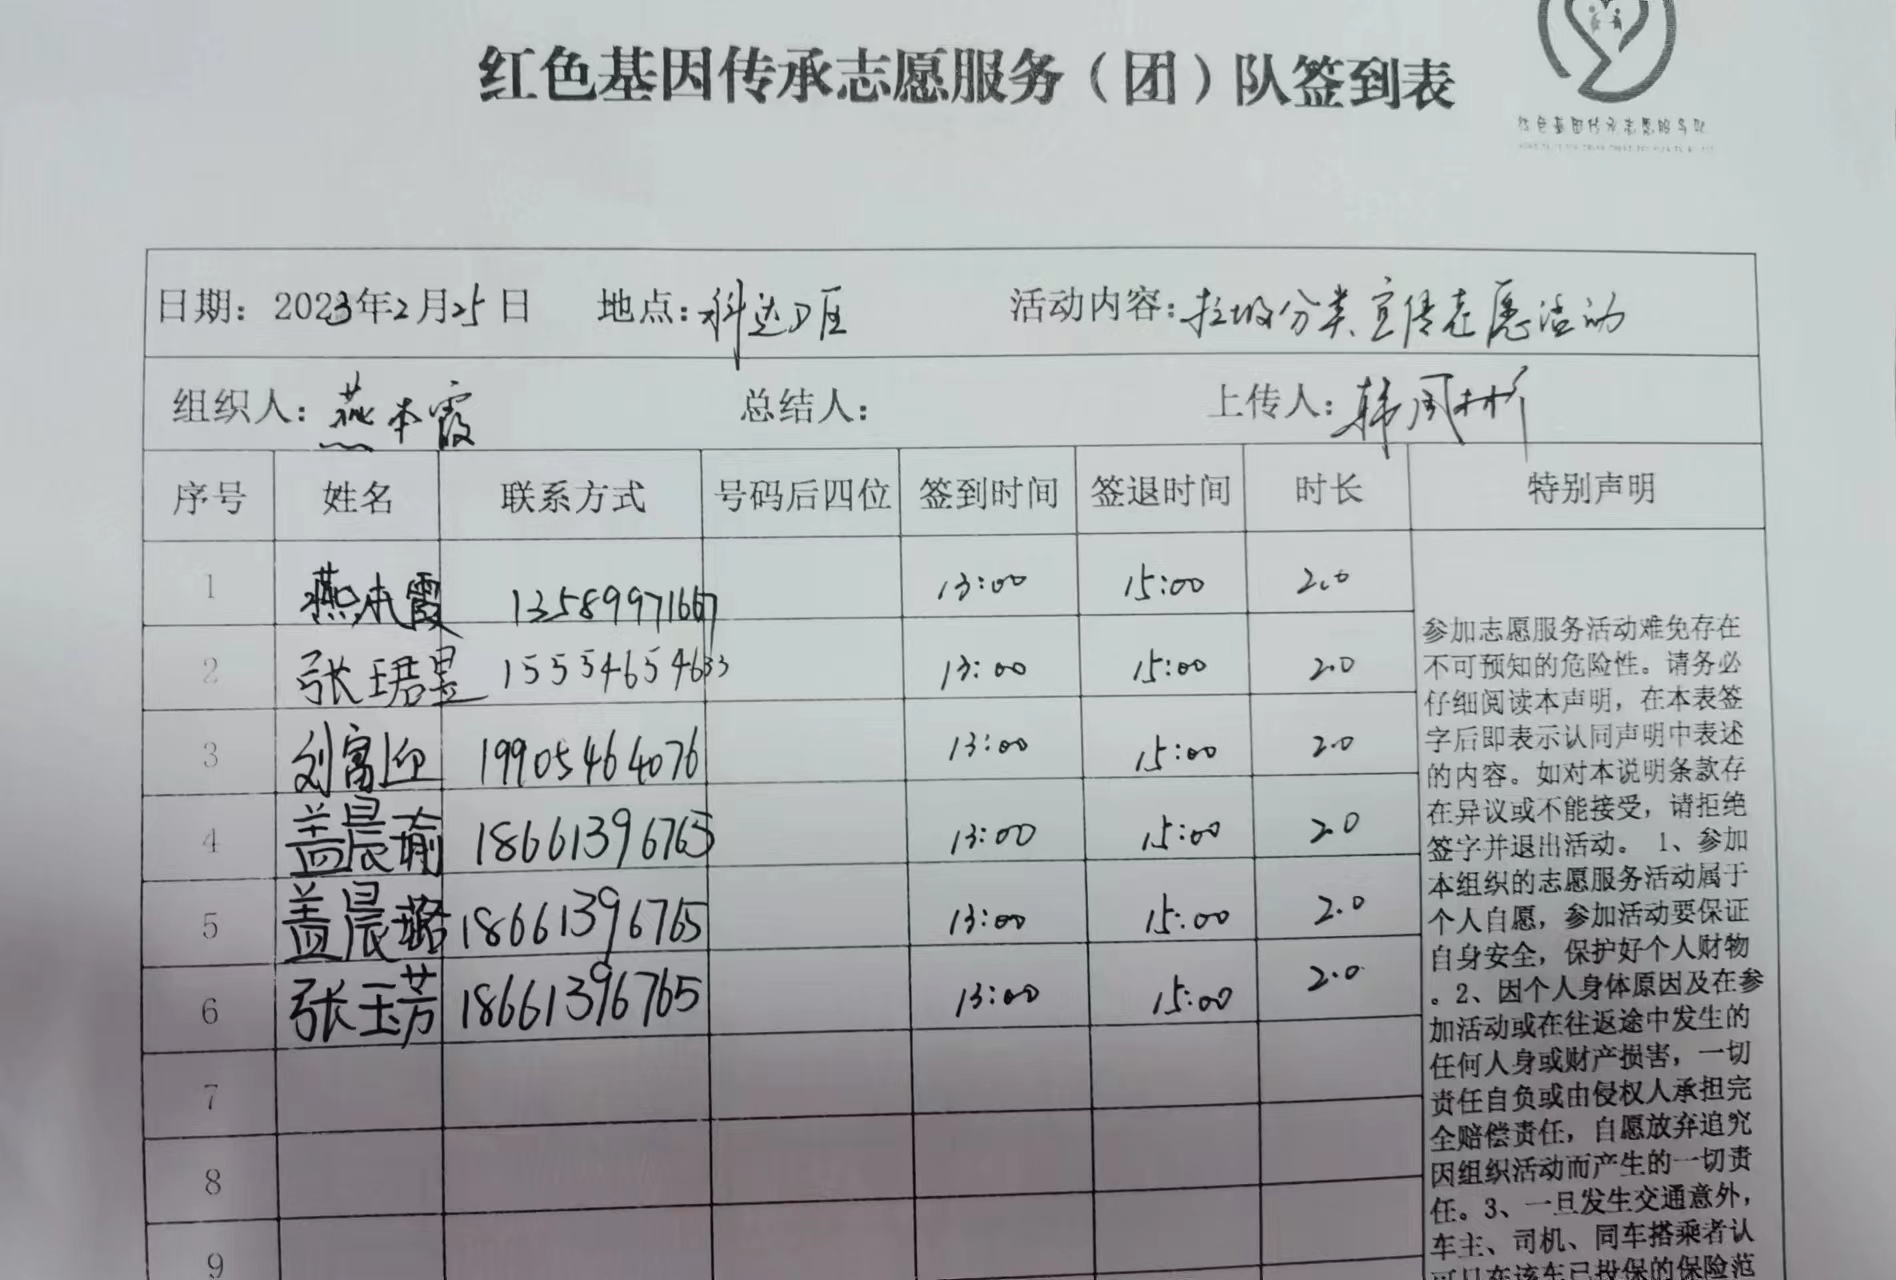 红色基因传承志愿服务（团）队签到表
红色基因传承志愿服务队
日期：2023年2月25日 地点：科达小区 活动内容：垃圾分类宣传志愿活动
组织人：燕本霞 总结人： 上传人：韩周彬
序号 姓名 联系方式 号码后四位 签到时间 签退时间 时长 特别声明
1 燕本霞 13589971667 13:00 15:00 2.0
2 张珺昱 15554654633 13:00 15:00 2.0
3 刘富迎 19905464076 13:00 15:00 2.0
4 盖晨瑜 18661396765 13:00 15:00 2.0
5 盖晨璐 18661396765 13:00 15:00 2.0
6 张玉芳 18661396765 13:00 15:00 2.0
7
8
9
参加志愿服务活动难免存在
不可预知的危险性。请务必
仔细阅读本声明，在本表签
字后即表示认同声明中表述
的内容。如对本说明条款存
在异议或不能接受，请拒绝
签字并退出活动。 1、参加
本组织的志愿服务活动属于
个人自愿，参加活动要保证
自身安全，保护好个人财物
。2、因个人身体原因及在参
加活动或在往返途中发生的
任何人身或财产损害，一切
责任自负或由侵权人承担完
全赔偿责任，自愿放弃追究
因组织活动而产生的一切责
任。3、一旦发生交通意外，
车主、司机、同车搭乘者认
可只在该车已投保的保险范